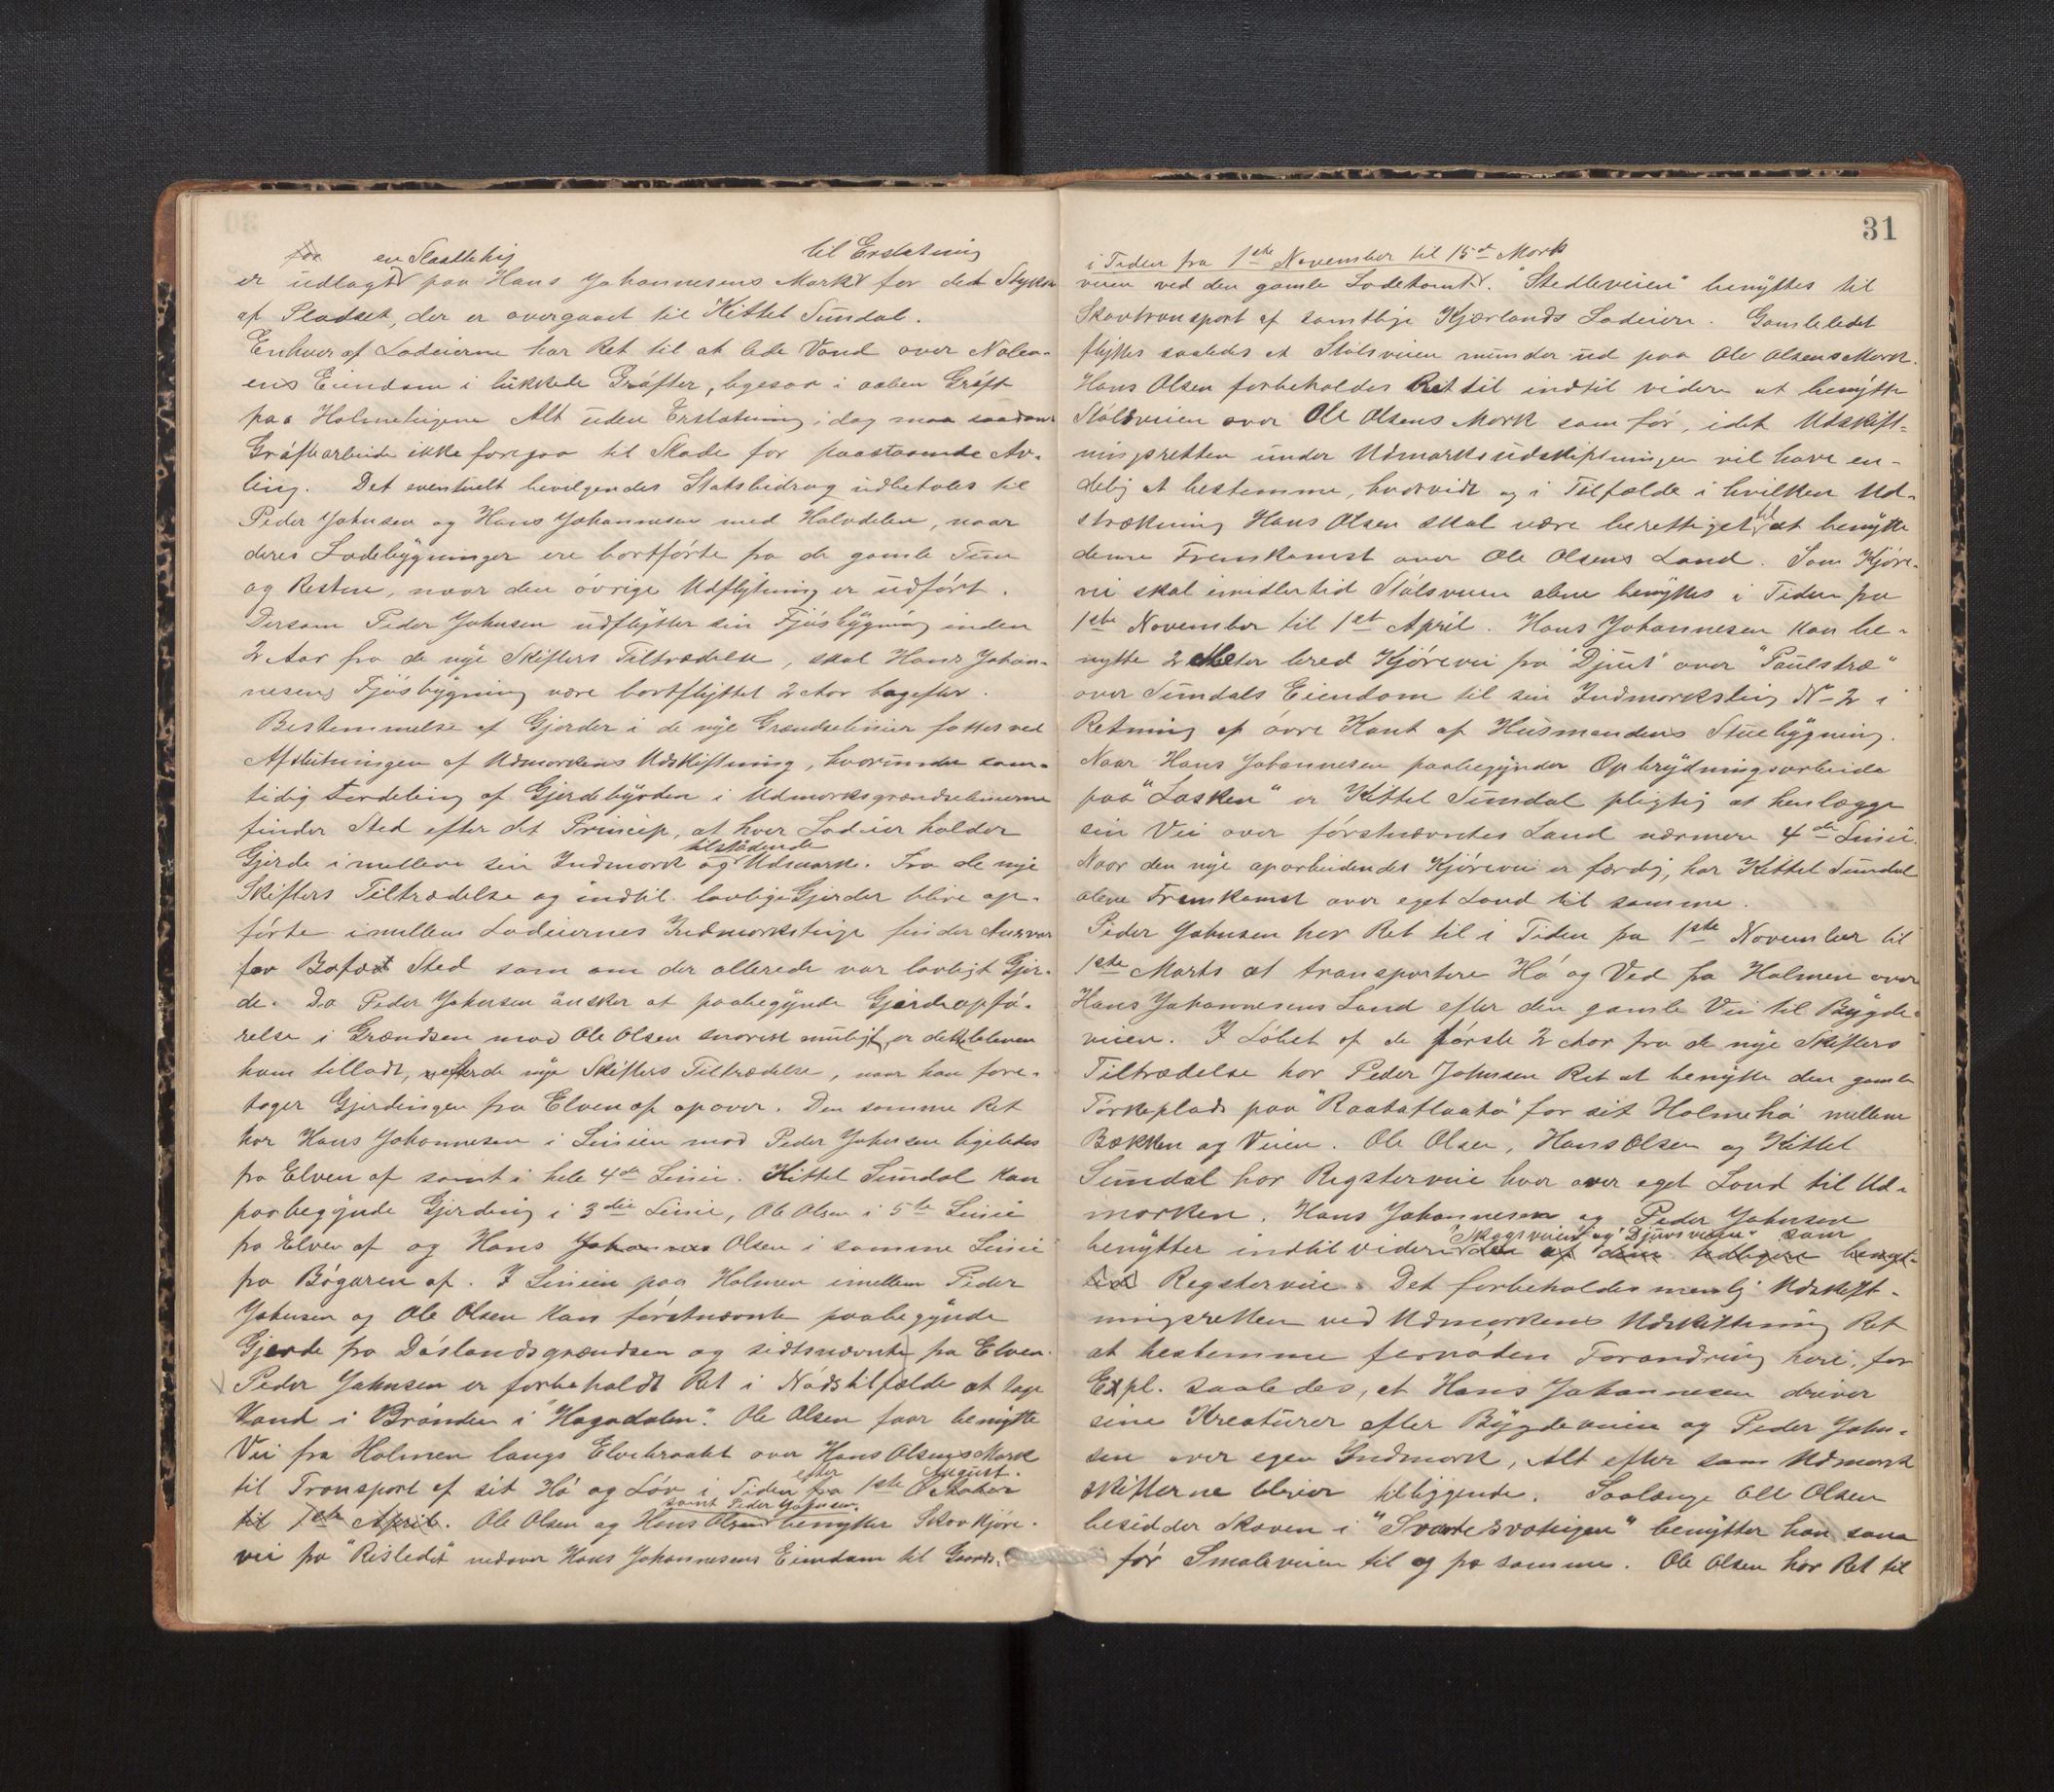 faa en Slaatteteig til Erstatning
er udlagt paa Hans Johannesens Mark for det Stykke
af Pladset, der er overgaaet til Kittel Sundal.
Enhver af Lodeierne har Ret til at lede Vand over Naboens
Eiendom i lukkede Grøfter, ligesaa i aaben Grøft
paa Holmeteigene Alt uden Erstatning, idog maa saadant
Grøftearbeide ikke foregaa til Skade for paastaaende Av-
ling. Det eventuelt bevilgendes Statsbidrag udbetales til
Peder Johnsen og Hans Johannesen med Halvdelen, naar
deres Ladebygninger ere bortførte fra de gamle Tun
og Resten, naar den øvrige Udflytning er udført.
Dersom Peder Johnsen udflytter sin Fjøsbygning inden
2 Aar fra de nye Skifters Tiltrædelse, skal Hans Johan-
nesens Fjøsbygning være bortflyttet 2 Aar bagefter.
Bestemmelse af Gjerder i de nye Grændselinier fattes ved
Afslutningen af Udmarkens Udskiftning, hvorunder sam-
tidig Fordeling af Gjerdebyrden i Udmarksgrændselinierne
finder Sted efter det Princip, at hver Lodeier holder
tilstødende
Gjerde imellem sin Indmark og Udmark. Fra de nye
Skifters Tiltrædelse og indtil lovlige Gjerder blive op-
førte imellem Lodeiernes Indmarksteige finder Ansvar
for Bofæ Sted som om der allerede var lovligt Gjer-
de. Da Peder Johnsen ønsker at paabegynde Gjerdeopfø-
relse i Grændsen mod Ole Olsen snarest muligt, er dette bleven
ham tilladt, efter de nye Skifters Tiltrædelse, naar han fore-
tager Gjerdingen fra Elven af opover. Den samme Ret
har Hans Johannesen i Linien mod Peder Johnsen ligeledes
fra Elven af samt i hele 4de Linie. Kittel Sundal kan
paabegynde Gjerding i 3die Linie, Ole Olsen i 5te Linie
fra Elven af og Hans Johannes Olsen i samme Linie
fra Bøgaren af. I Linien paa Holmen imellem Peder
Johnsen og Ole Olsen kan førstnævnte paabegynde
Gjerde fra Døslandsgrændsen og sidtsnævnte fra Elven.
Peder Johnsen er forbeholdt Ret i Nødstilfælde at tage
Vand i Brønden i "Hagadalen". Ole Olsen faar benytte
Vei fra Holmen langs Elvebraatet over Hans Olsens Mark
efter August.
til Transport af sit Hø og Løv i Tiden fra 1ste Oktober
samt Peder Johnsen
til 1ste April. Ole Olsen og Hans Olsen benytter Skovkjøre-
vei fra "Risledet" nedover Hans Johannesens Eiendom til Gaards-
31
i Tiden fra 1ste November til 15de Marts
veien ved den gamle Ladetomt. "Stedleveien" benyttes til
Skovtransport af samtlige Kjærlands Lodeiere. Gamleledet
flyttes saaledes at Stølsveien munder ud paa Ole Olsens Mark.
Hans Olsen forbeholdes Ret til indtil videre at benytte
Stølsveien over Ole Olsens Mark som før, idet Udskift-
ningsretten under Udmarksudskiftningen vil have en-
delig at bestemme, hvorvidt og i Tilfælde i hvilken Ud-
strækning Hans Olsen skal være berettiget til at benytte
denne Fremkomst over Ole Olsens Land. Som Kjøre-
vei skal imidlertid Stølsveien alene benyttes i Tiden fra
1ste November til 1ste April. Hans Johannesen kan be-
nytte 2 Meter bred Kjørevei fra "Djuet" over "Paulstræ"
over Sundals Eiendom til sin Indmarksteig No 2 i
Retning af øvre Kant af Husmandens Stuebygning.
Naar Hans Johannesen paabegynder Opbrydningsarbeide
paa "Lasken" er Kittel Sundal pligtig at henlægge
sin Vei over førstnævntes Land nærmere 4de Linie.
Naar den nye oparbeidendes Kjørevei er færdig, har Kittel Sundal
alene Fremkomst over eget Land til samme.
Peder Johnsen har Ret til i Tiden fra 1ste November til
1ste Marts at transportere Hø og Ved fra Holmen over
Hans Johannesens Land efter den gamle Vei til Bygde-
veien. I Løbet af de første 2 Aar fra de nye Skifters
Tiltrædelse har Peder Johnsen Ret at benytte den gamle
Tørkeplads paa "Raataflaato" for sit Holmehø mellem
Bækken og Veien. Ole Olsen, Hans Olsen og Kittel
Sundal har Rægsterveie hver over eget Land til Ud-
marken. Hans Johannesen og Peder Johnsen
"Skogsveien" og "Djuvsveien" som
benytter indtil videre den af dem tidligere benyt-
tede Rægsterveie. Det forbeholdes menlig Udskift-
ningsretten ved Udmarkens Udskiftning Ret
at bestemme fornøden Forandring heri, for
Expl. saaledes, at Hans Johannesen driver
sine Kreaturer efter Bygdeveien og Peder John-
sen over egen Indmark, Alt efter som Udmark
skifterne bliver tilliggende. Saalænge Ole Olsen
besidder Skoven i "Svartesvateigen" benytter han som
før Smaleveien til og fra samme. Ole Olsen har Ret til